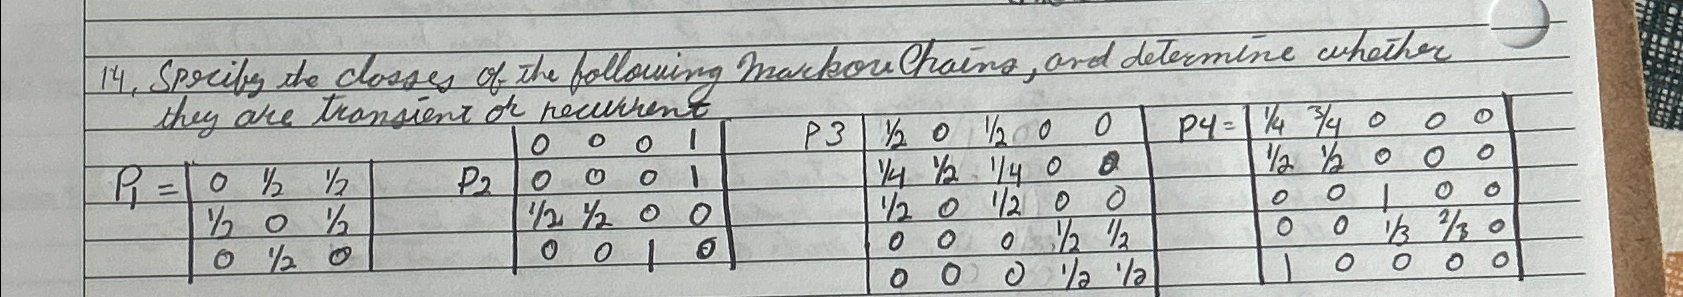 14, Specify the classes of the following Markov Chains, and determine whether
they are transient or recurrent
P1 =
0 1/2 1/2
1/2 0 1/2
0 1/2 0
P2
0 0 0 1
0 0 0 1
1/2 1/2 0 0
0 0 1 0
P3
1/2 0 1/2 0 0
1/4 1/2 1/4 0 0
1/2 0 1/2 0 0
0 0 0 1/2 1/2
0 0 0 1/2 1/2
P4 =
1/4 3/4 0 0 0
1/2 1/2 0 0 0
0 0 1 0 0
0 0 1/3 2/3 0
1 0 0 0 0